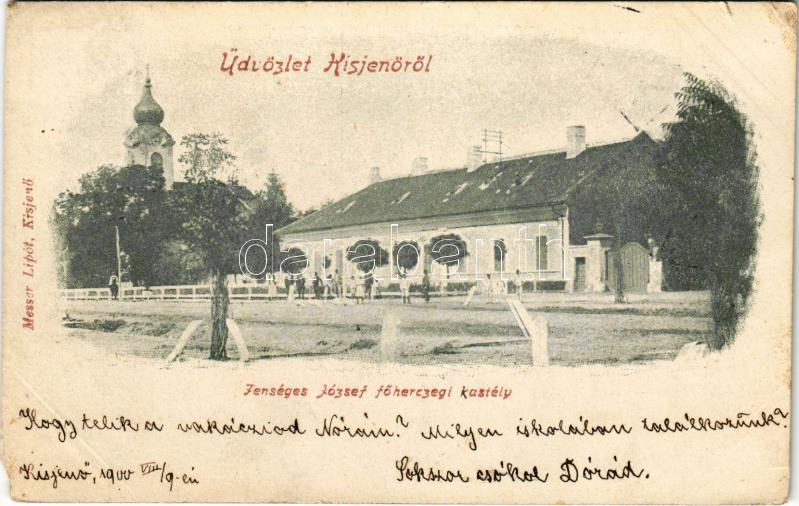 Üdvözlet Kisjenöről
Messer Lipót, Kisjenő
darabanth
Fenséges József főherczegi kastély
Hogy telik a vakácziod Nórám? Milyen iskolában találkozünk?
Kisjenő, 1900 VIII/9-én
Sokszor csókol Dórád.